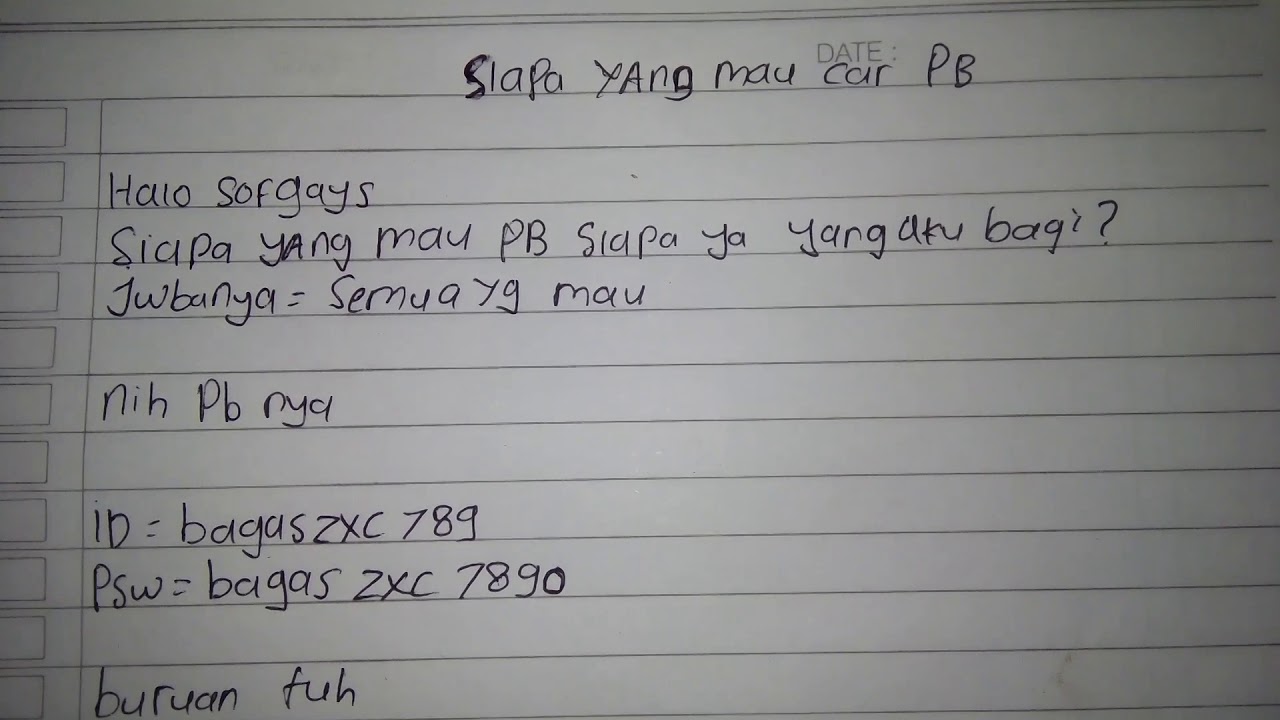 DATE :
Siapa YAng mau car PB
Halo sofgays
Siapa YAng mau PB Siapa ya yang aku bagi?
Jwbanya = Semua yg mau
nih Pb nya
iD = bagaszxc 789
Psw = bagas zxc 7890
buruan tuh